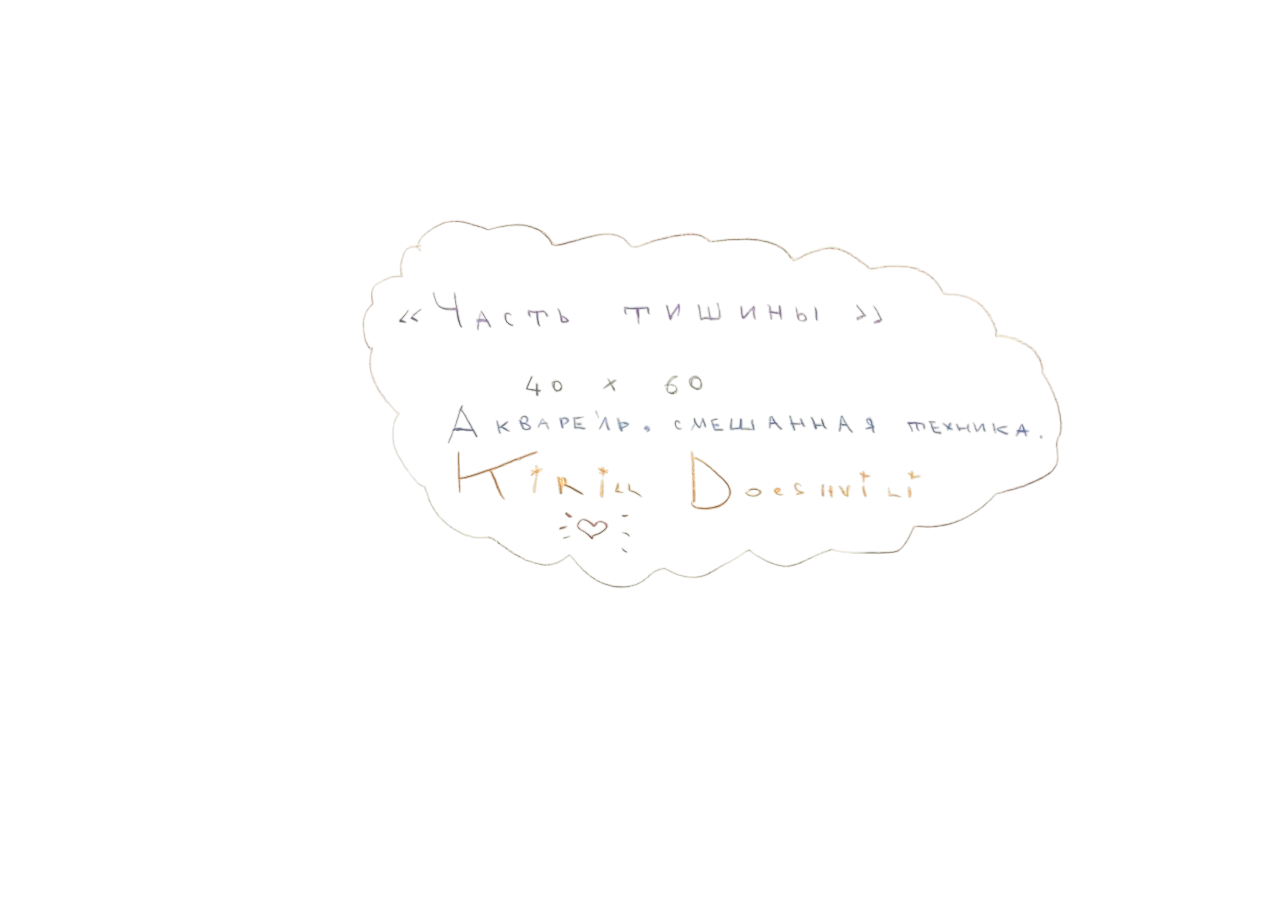 «Часть тишины»
40 x 60
Акварель, смешанная техника.
Kirill Doeshvili